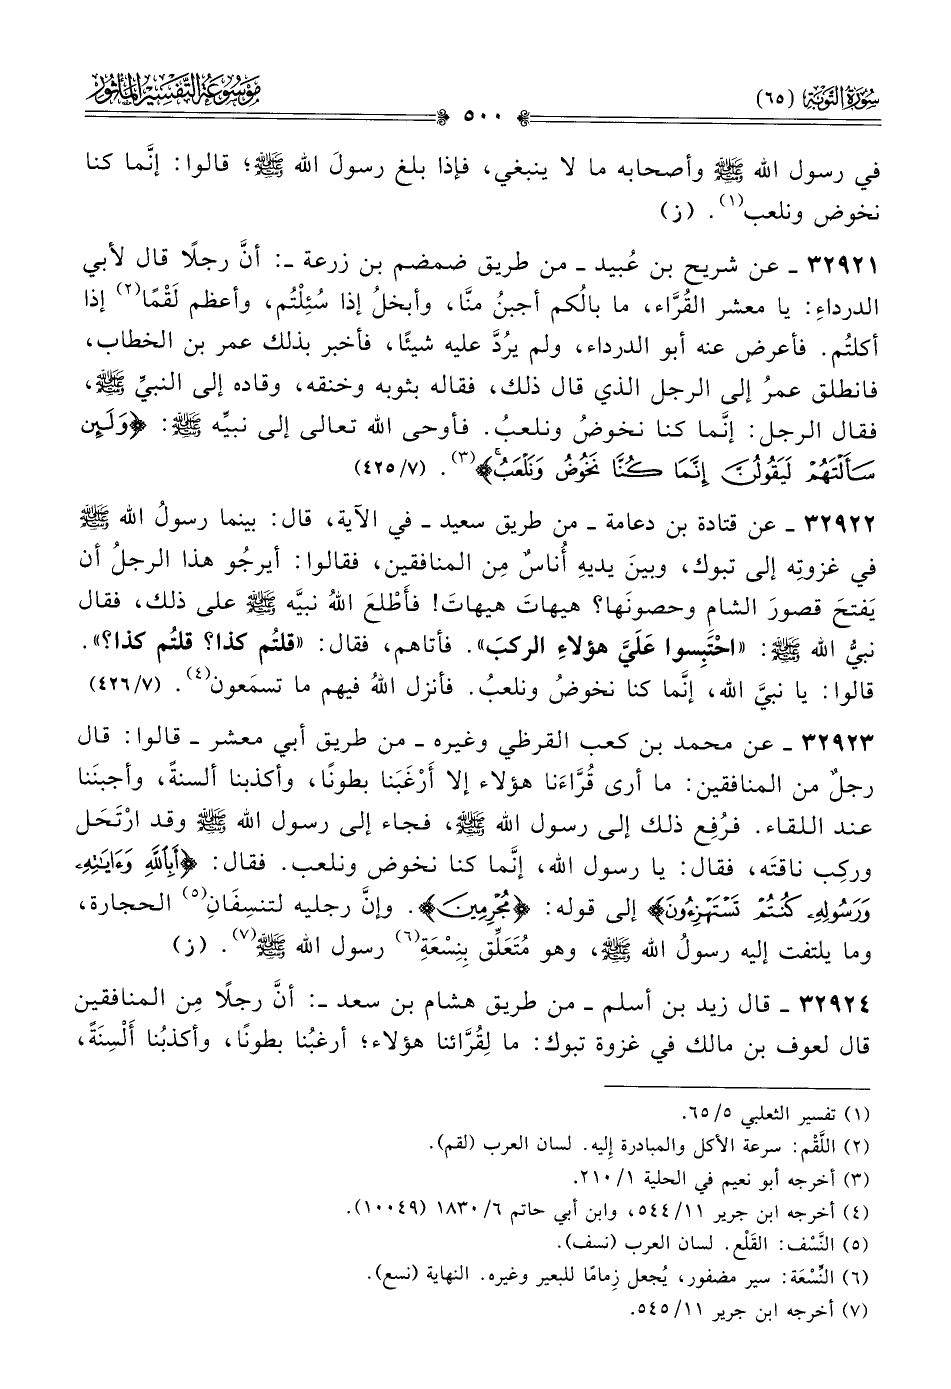 سورة التوبة (٦٥)
٥٠٠
موسوعة التفسير المأثور
في رسول الله ﷺ وأصحابه ما لا ينبغي، فإذا بلغ رسولَ الله ﷺ؛ قالوا: إنَّما كنا
نخوض ونلعب(١). (ز)
٣٢٩٢١ ـ عن شريح بن عُبيد ـ من طريق ضمضم بن زرعة ـ: أنَّ رجلًا قال لأبي
الدرداءِ: يا معشر القُرَّاء، ما بالُكم أجبنُ منَّا، وأبخلُ إذا سُئِلْتُم، وأعظم لَقْمًا(٢) إذا
أكلتُم. فأعرض عنه أبو الدرداء، ولم يرُدَّ عليه شيئًا، فأخبر بذلك عمر بن الخطاب،
فانطلق عمرُ إلى الرجل الذي قال ذلك، فقاله بثوبه وخنقه، وقاده إلى النبيِّ ﷺ،
فقال الرجل: إنَّما كنا نخوضُ ونلعبُ. فأوحى الله تعالى إلى نبيِّه ﷺ: ﴿وَلَئِن
سَأَلۡتَهُمۡ لَيَقُولُنَّ إِنَّمَا كُنَّا نَخُوضُ وَنَلۡعَبُۚ﴾(٣). (٤٢٥/٧)
٣٢٩٢٢ ـ عن قتادة بن دعامة ـ من طريق سعيد ـ في الآية، قال: بينما رسولُ الله ﷺ
في غزوتِه إلى تبوك، وبينَ يديهِ أُناسٌ مِن المنافقين، فقالوا: أيرجُو هذا الرجلُ أن
يَفتحَ قصورَ الشام وحصونَها؟ هيهاتَ هيهاتَ! فأَطْلعَ اللهُ نبيَّه ﷺ على ذلك، فقال
نبيُّ الله ﷺ: «احْتَبِسوا عَلَيَّ هؤلاءِ الركبَ». فأتاهم، فقال: «قلتُم كذا؟ قلتُم كذا؟».
قالوا: يا نبيَّ الله، إنَّما كنا نخوضُ ونلعبُ. فأنزل اللهُ فيهم ما تسمَعون(٤). (٤٢٦/٧)
٣٢٩٢٣ ـ عن محمد بن كعب القرظي وغيره ـ من طريق أبي معشر ـ قالوا: قال
رجلٌ من المنافقين: ما أرى قُرَّاءَنا هؤلاء إلا أَرْغَبَنا بطونًا، وأكذبنا ألسنةً، وأجبنَنا
عند اللقاء. فرُفِع ذلك إلى رسول الله ﷺ، فجاء إلى رسول الله ﷺ وقد ارْتَحَل
وركِب ناقتَه، فقال: يا رسول الله، إنَّما كنا نخوض ونلعب. فقال: ﴿أَبِٱللَّهِ وَءَايَٰتِهِۦ
وَرَسُولِهِۦ كُنتُمۡ تَسۡتَهۡزِءُونَ﴾ إلى قوله: ﴿مُجۡرِمِينَ﴾. وإنَّ رجليه لتنسِفَانِ(٥) الحجارة،
وما يلتفت إليه رسولُ الله ﷺ، وهو مُتَعَلِّق بِنِسْعَةِ(٦) رسول الله ﷺ(٧). (ز)
٣٢٩٢٤ ـ قال زيد بن أسلم ـ من طريق هشام بن سعد ـ: أنَّ رجلًا مِن المنافقين
قال لعوف بن مالك في غزوة تبوك: ما لِقُرَّائنا هؤلاء؛ أرغبُنا بطونًا، وأكذبُنا أَلْسِنَةً،
(١) تفسير الثعلبي ٥/ ٦٥.
(٢) اللَّقْم: سرعة الأكل والمبادرة إليه. لسان العرب (لقم).
(٣) أخرجه أبو نعيم في الحلية ١/ ٢١٠.
(٤) أخرجه ابن جرير ١١/ ٥٤٤، وابن أبي حاتم ٦/ ١٨٣٠ (١٠٠٤٩).
(٥) النَّسْف: القَلْع. لسان العرب (نسف).
(٦) النِّسْعَة: سير مضفور، يُجعل زِمامًا للبعير وغيره. النهاية (نسع).
(٧) أخرجه ابن جرير ١١/ ٥٤٥.